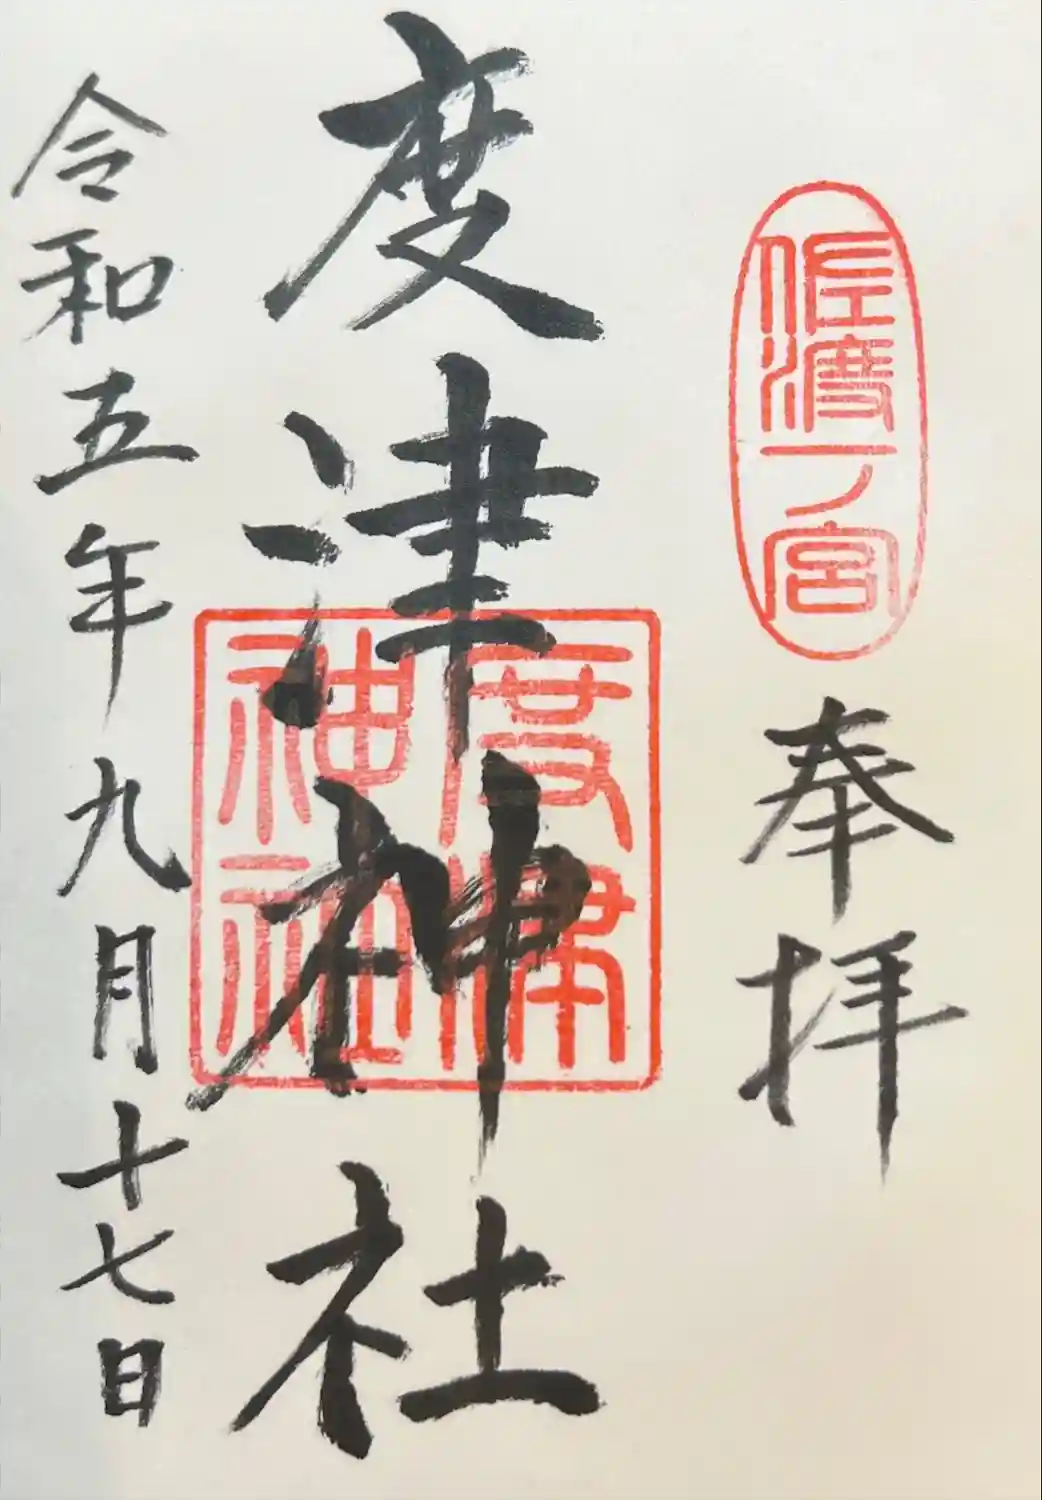 佐渡一ノ宮
奉拝
度津神社
度津
神社
令和五年九月十七日